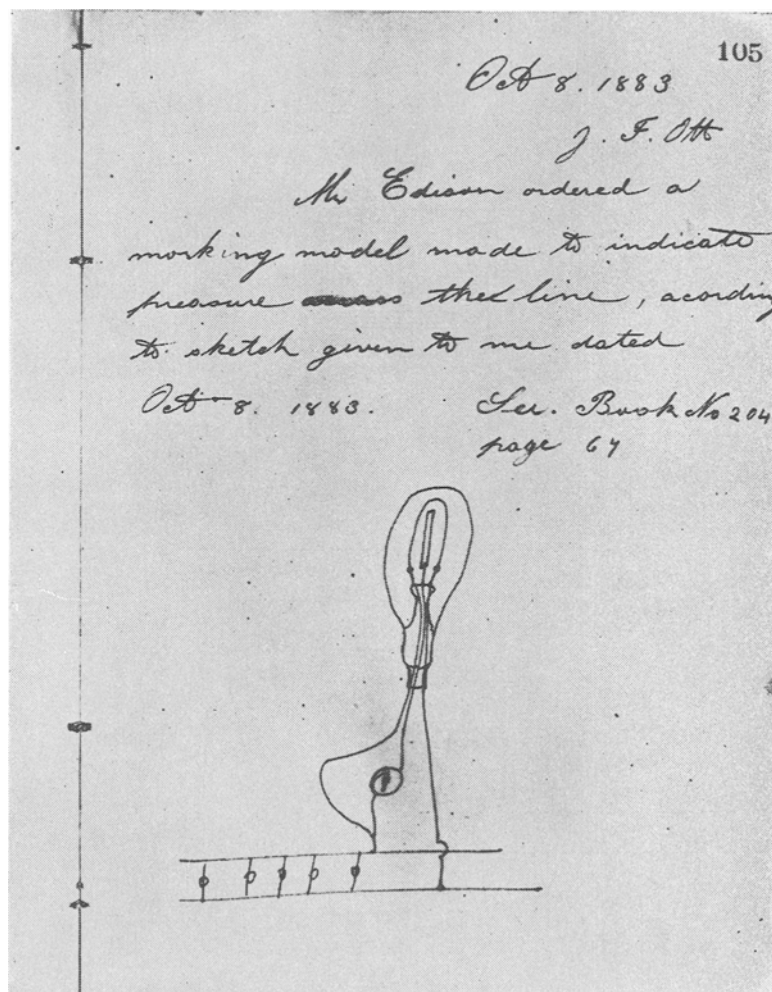 105
Oct 8. 1883
J. F. Ott
Mr Edison ordered a
working model made to indicate
preasure the line, acording
to sketch given to me dated
Oct 8. 1883. Scr. Book No 204
page 67